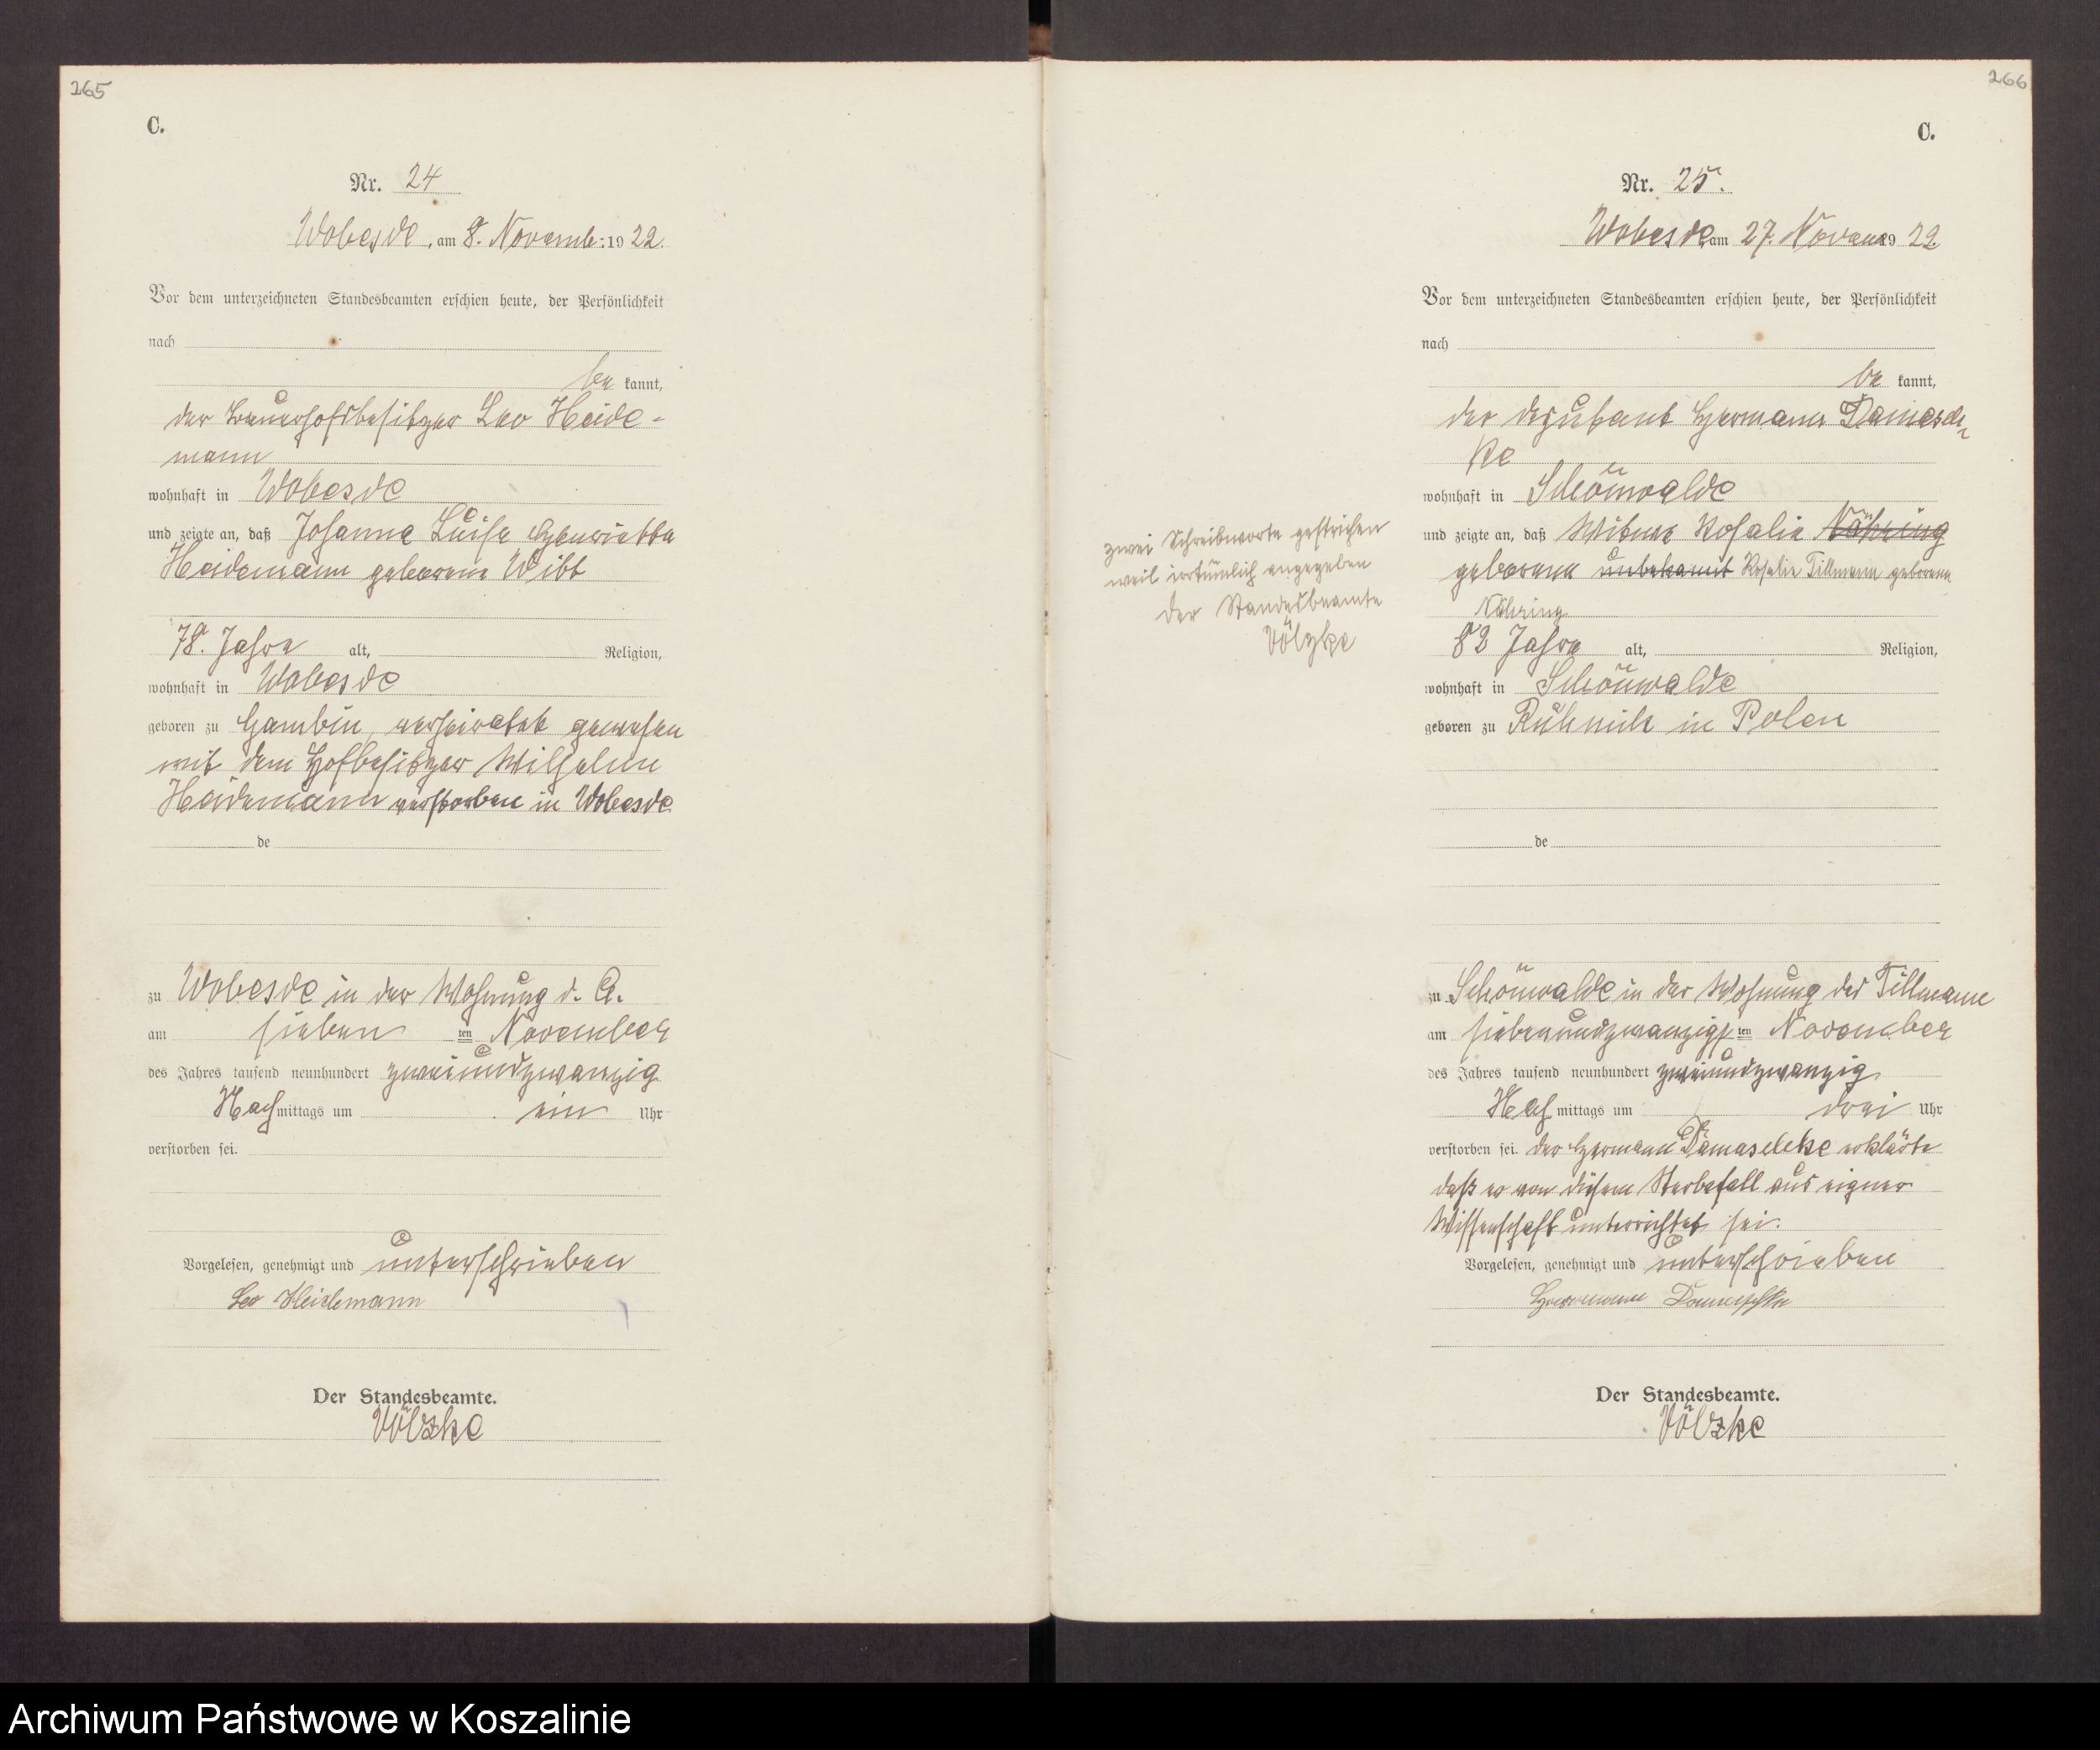 265
C.
Nr. 24
Wobesde, am 8. Novemb: 1922.
Vor dem unterzeichneten Standesbeamten erschien heute, der Persönlichkeit
nach
be kannt,
der Bauerhofsbesitzer Leo Heide-
mann
wohnhaft in Wobesde
und zeigte an, daß Johanne Luise Henriette
Heidemann geborene Witt
78. Jahre alt, Religion,
wohnhaft in Wobesde
geboren zu Gambin, verheiratet gewesen
mit dem Hofbesitzer Wilhelm
Heidemann verstorben in Wobesde
de
zu Wobesde in der Wohnung d. A.
am sieben ten November
des Jahres tausend neunhundert zweiundzwanzig
Nachmittags um ein Uhr
verstorben sei.
Vorgelesen, genehmigt und unterschrieben
Leo Heidemann
Der Standesbeamte.
Völzke
266
C.
Nr. 25.
Wobesde am 27. Novem 1922.
Vor dem unterzeichneten Standesbeamten erschien heute, der Persönlichkeit
nach
be kannt,
der Deputant Hermann Damasch-
ke
wohnhaft in Schönwalde
und zeigte an, daß Witwe Rosalie Nöhring
geborene unbekannt Rosalie Tillmann geborene
Nöhring
82 Jahre alt, Religion,
wohnhaft in Schönwalde
geboren zu in Polen
de
zu Schönwalde in der Wohnung der Tillmann
am siebenundzwanzigsten November
des Jahres tausend neunhundert zweiundzwanzig
Nachmittags um drei Uhr
verstorben sei. der Hermann Damaschke erklärte
daß er von diesem Sterbefall aus eigner
Wissenschaft unterrichtet sei.
Vorgelesen, genehmigt und unterschrieben
Hermann Damaschke
Der Standesbeamte.
Völzke
zwei Schreibworte gestrichen
weil irrtümlich angegeben
der Standesbeamte
Völzke
Archiwum Państwowe w Koszalinie